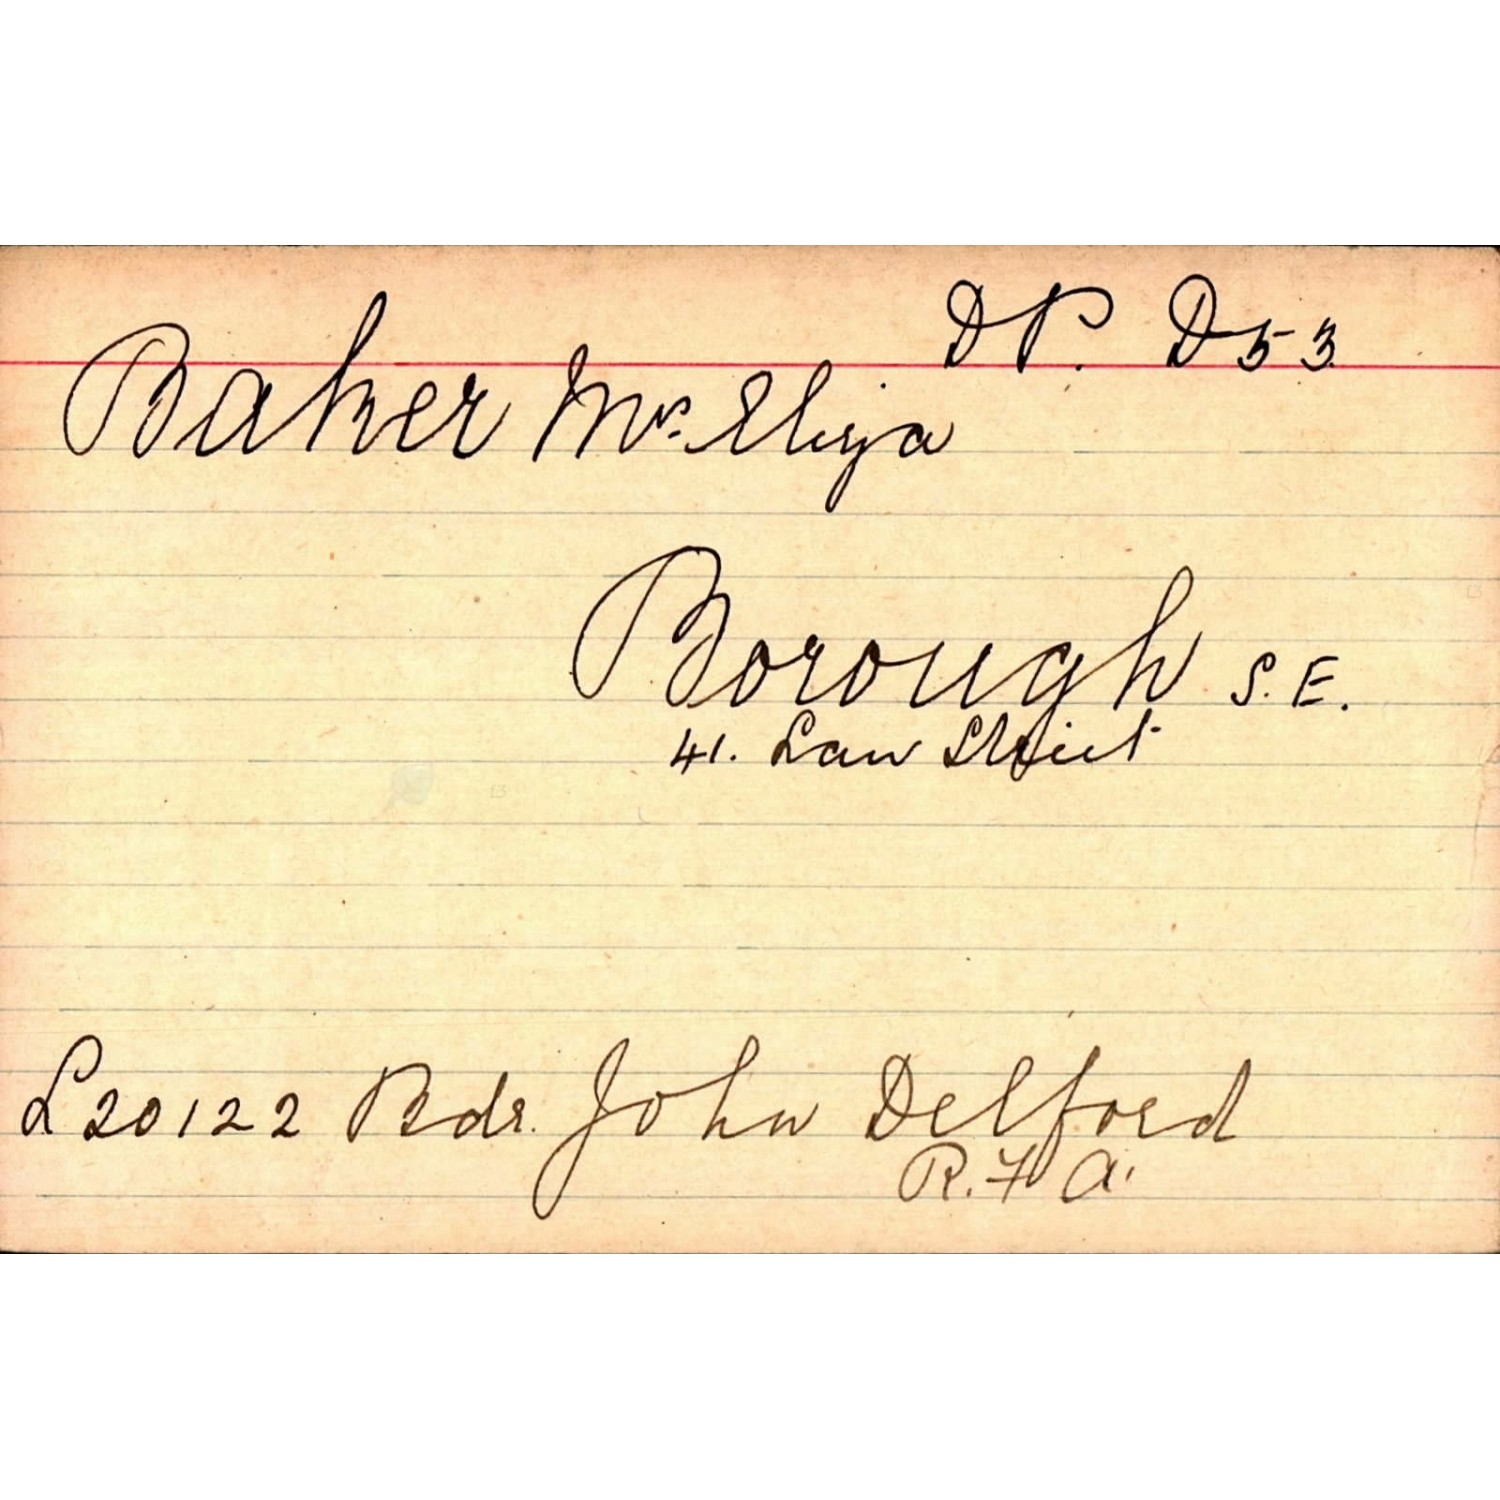 DP. D53
Baker Mrs. Eliza
Borough S.E.
41. Law Street
L20122 Bdr. John Delford
R.F.A.